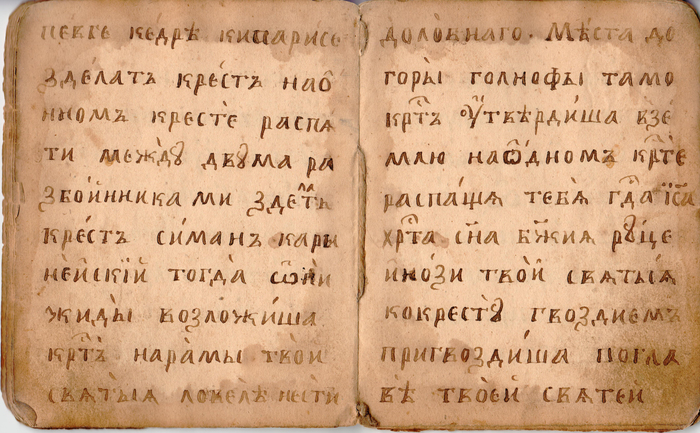 певге кедрѣ кипарисе
здѣлатъ крестъ наѻ҆
нномъ кресте распѧ
ти междꙋ двꙋма ра
збойникками здѣт̾ъ
крестъ симанъ кари
нейскїй тогда ѡ҆ни
жиды возложиша
кр҃тъ нарамы твои
свѧтыѧ повелѣ нести
доловнаго. Мѣста до
горы голнофы тамо
кр҃тъ ᲂу҆твердиша взе
млю наѻ҆дномъ кр҃те
распашѧ тебѧ гд҃а іс҃а
хр҃та сн҃а бж҃иѧ рꙋце
инози твои свѧтыѧ
кокрестꙋ гвоздиемъ
пригвоздиша погла
вѣ твоей свѧтеи